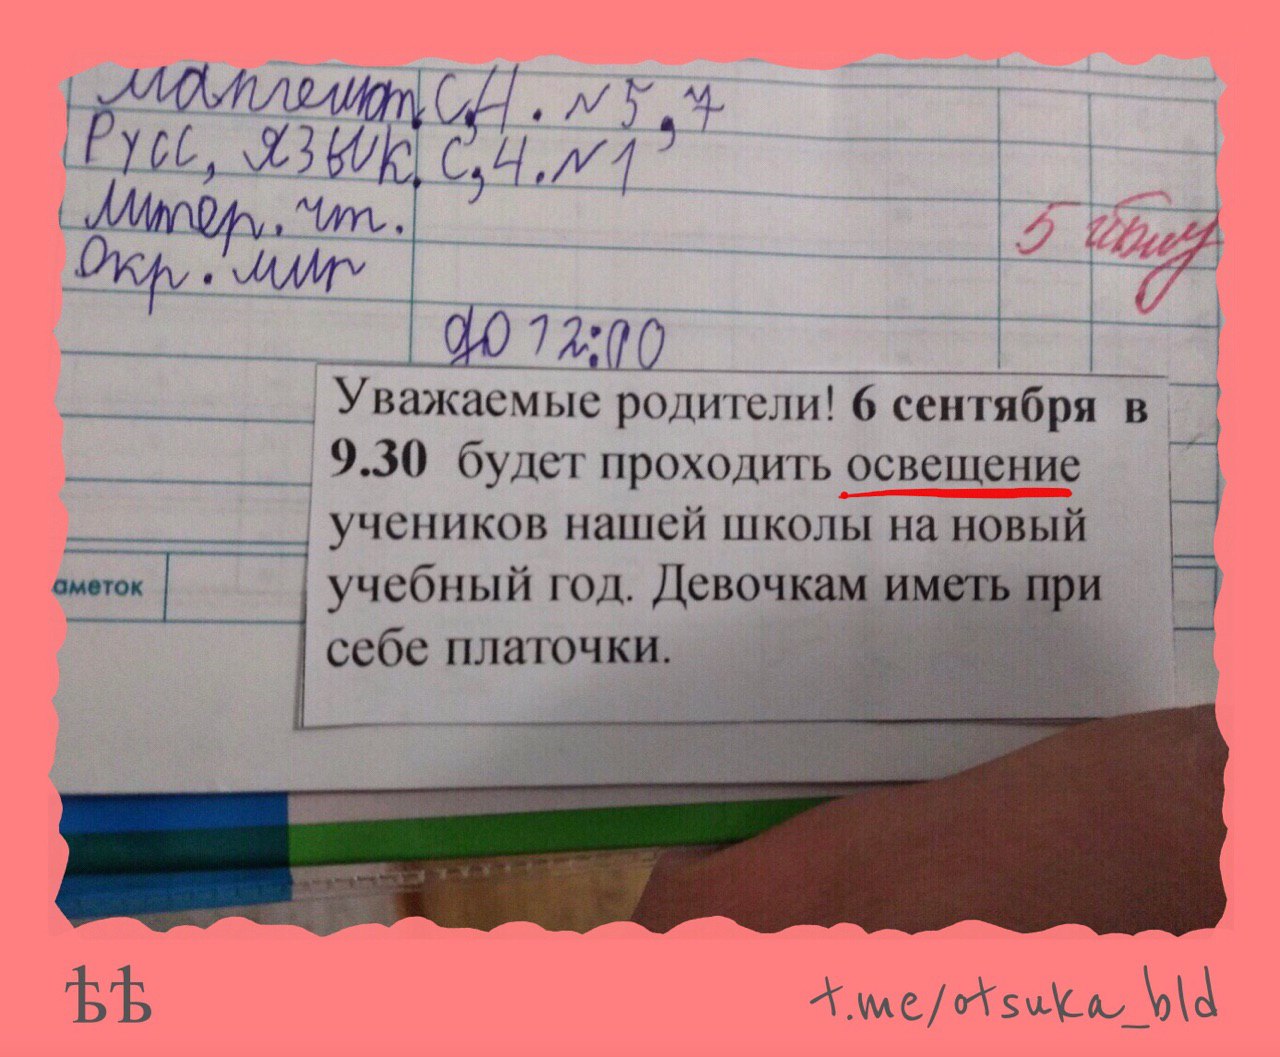 Математ. С,4. №5,7
Русс, язык. С,4. №1
Литер. чт.
Окр. мир
5
до 12:00
Уважаемые родители! 6 сентября в
9.30 будет проходить освещение
учеников нашей школы на новый
учебный год. Девочкам иметь при
себе платочки.
аметок
ѣѣ
t.me/otsuka_bld